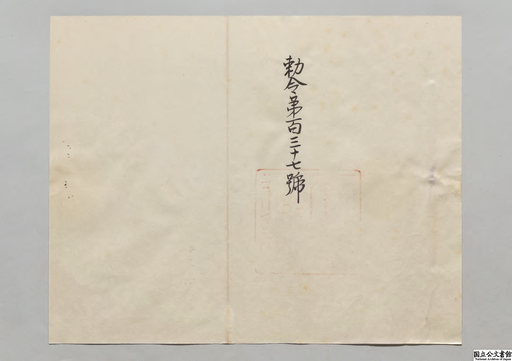 勅令第百三十七號
国立公文書館
National Archives of Japan